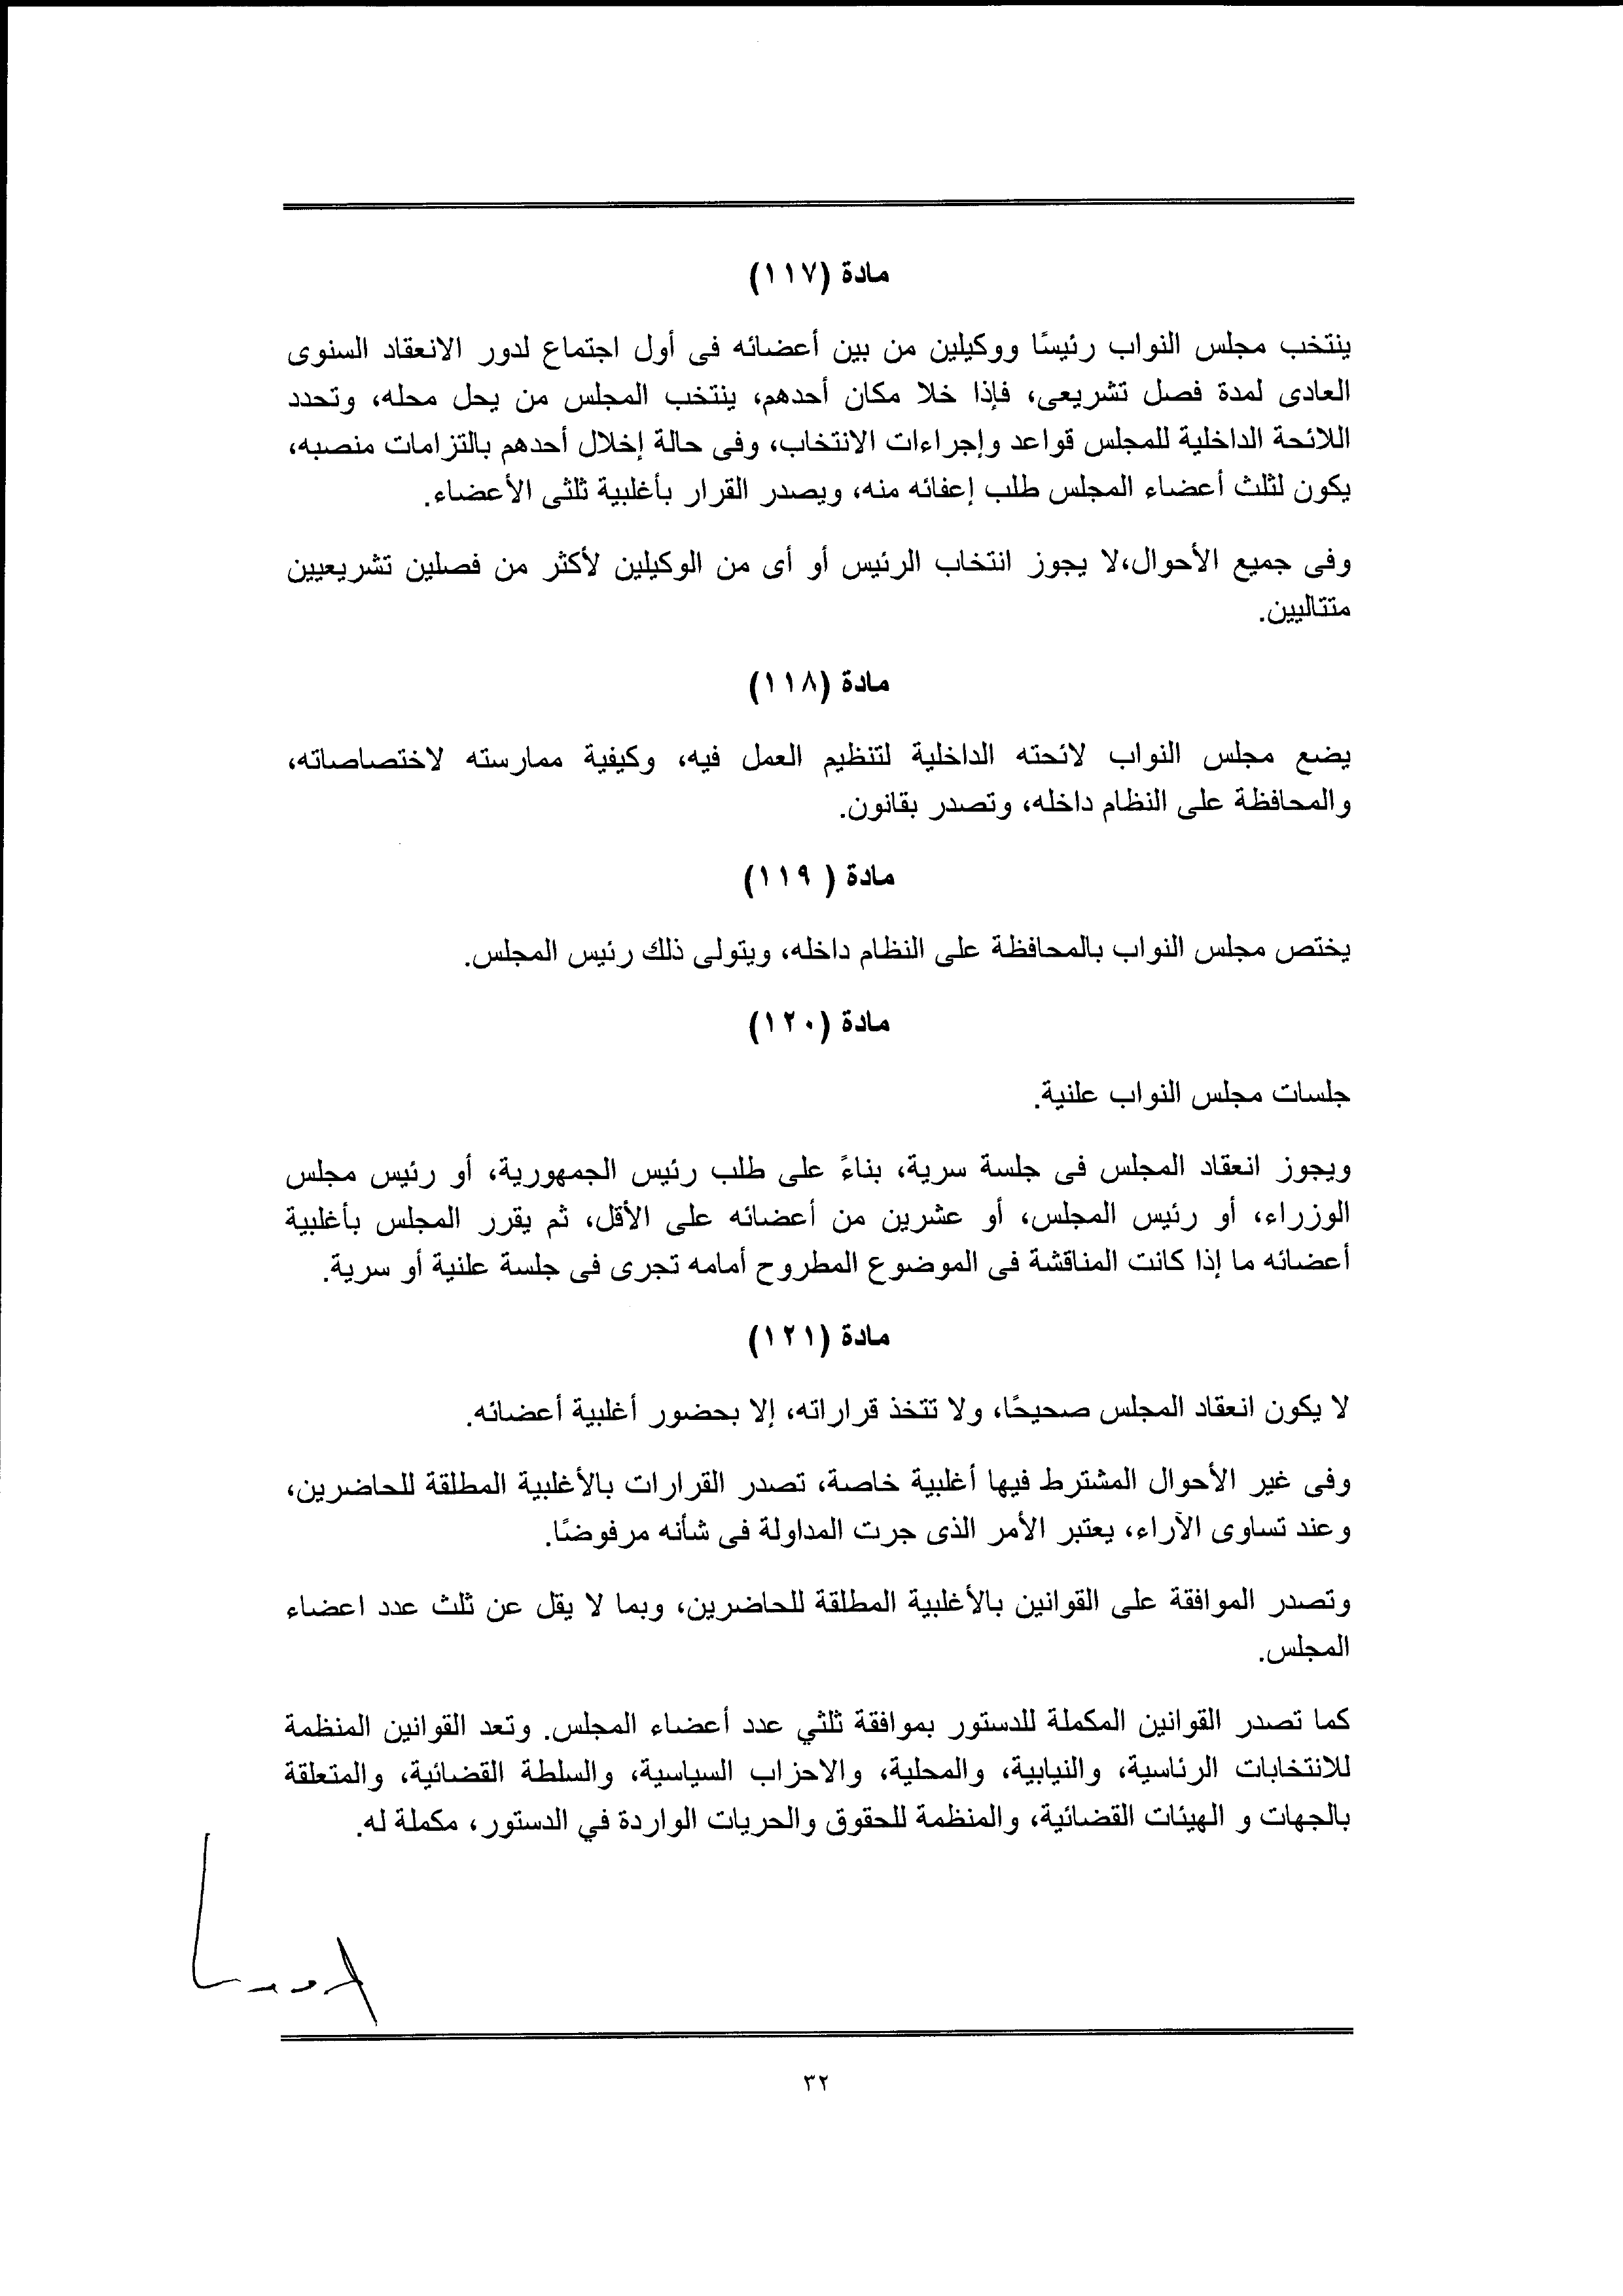 مادة (١١٧)
ينتخب مجلس النواب رئيسًا ووكيلين من بين أعضائه فى أول اجتماع لدور الانعقاد السنوى
العادى لمدة فصل تشريعى، فإذا خلا مكان أحدهم، ينتخب المجلس من يحل محله، وتحدد
اللائحة الداخلية للمجلس قواعد وإجراءات الانتخاب، وفى حالة إخلال أحدهم بالتزامات منصبه،
يكون لثلث أعضاء المجلس طلب إعفائه منه، ويصدر القرار بأغلبية ثلثى الأعضاء.
وفى جميع الأحوال،لا يجوز انتخاب الرئيس أو أى من الوكيلين لأكثر من فصلين تشريعيين
متتاليين.
مادة (١١٨)
يضع مجلس النواب لائحته الداخلية لتنظيم العمل فيه، وكيفية ممارسته لاختصاصاته،
والمحافظة على النظام داخله، وتصدر بقانون.
مادة ( ١١٩)
يختص مجلس النواب بالمحافظة على النظام داخله، ويتولى ذلك رئيس المجلس.
مادة (١٢٠)
جلسات مجلس النواب علنية.
ويجوز انعقاد المجلس فى جلسة سرية، بناءً على طلب رئيس الجمهورية، أو رئيس مجلس
الوزراء، أو رئيس المجلس، أو عشرين من أعضائه على الأقل، ثم يقرر المجلس بأغلبية
أعضائه ما إذا كانت المناقشة فى الموضوع المطروح أمامه تجرى فى جلسة علنية أو سرية.
مادة (١٢١)
لا يكون انعقاد المجلس صحيحًا، ولا تتخذ قراراته، إلا بحضور أغلبية أعضائه.
وفى غير الأحوال المشترط فيها أغلبية خاصة، تصدر القرارات بالأغلبية المطلقة للحاضرين،
وعند تساوى الآراء، يعتبر الأمر الذى جرت المداولة فى شأنه مرفوضًا.
وتصدر الموافقة على القوانين بالأغلبية المطلقة للحاضرين، وبما لا يقل عن ثلث عدد اعضاء
المجلس.
كما تصدر القوانين المكملة للدستور بموافقة ثلثي عدد أعضاء المجلس. وتعد القوانين المنظمة
للانتخابات الرئاسية، والنيابية، والمحلية، والاحزاب السياسية، والسلطة القضائية، والمتعلقة
بالجهات و الهيئات القضائية، والمنظمة للحقوق والحريات الواردة في الدستور، مكملة له.
٣٢